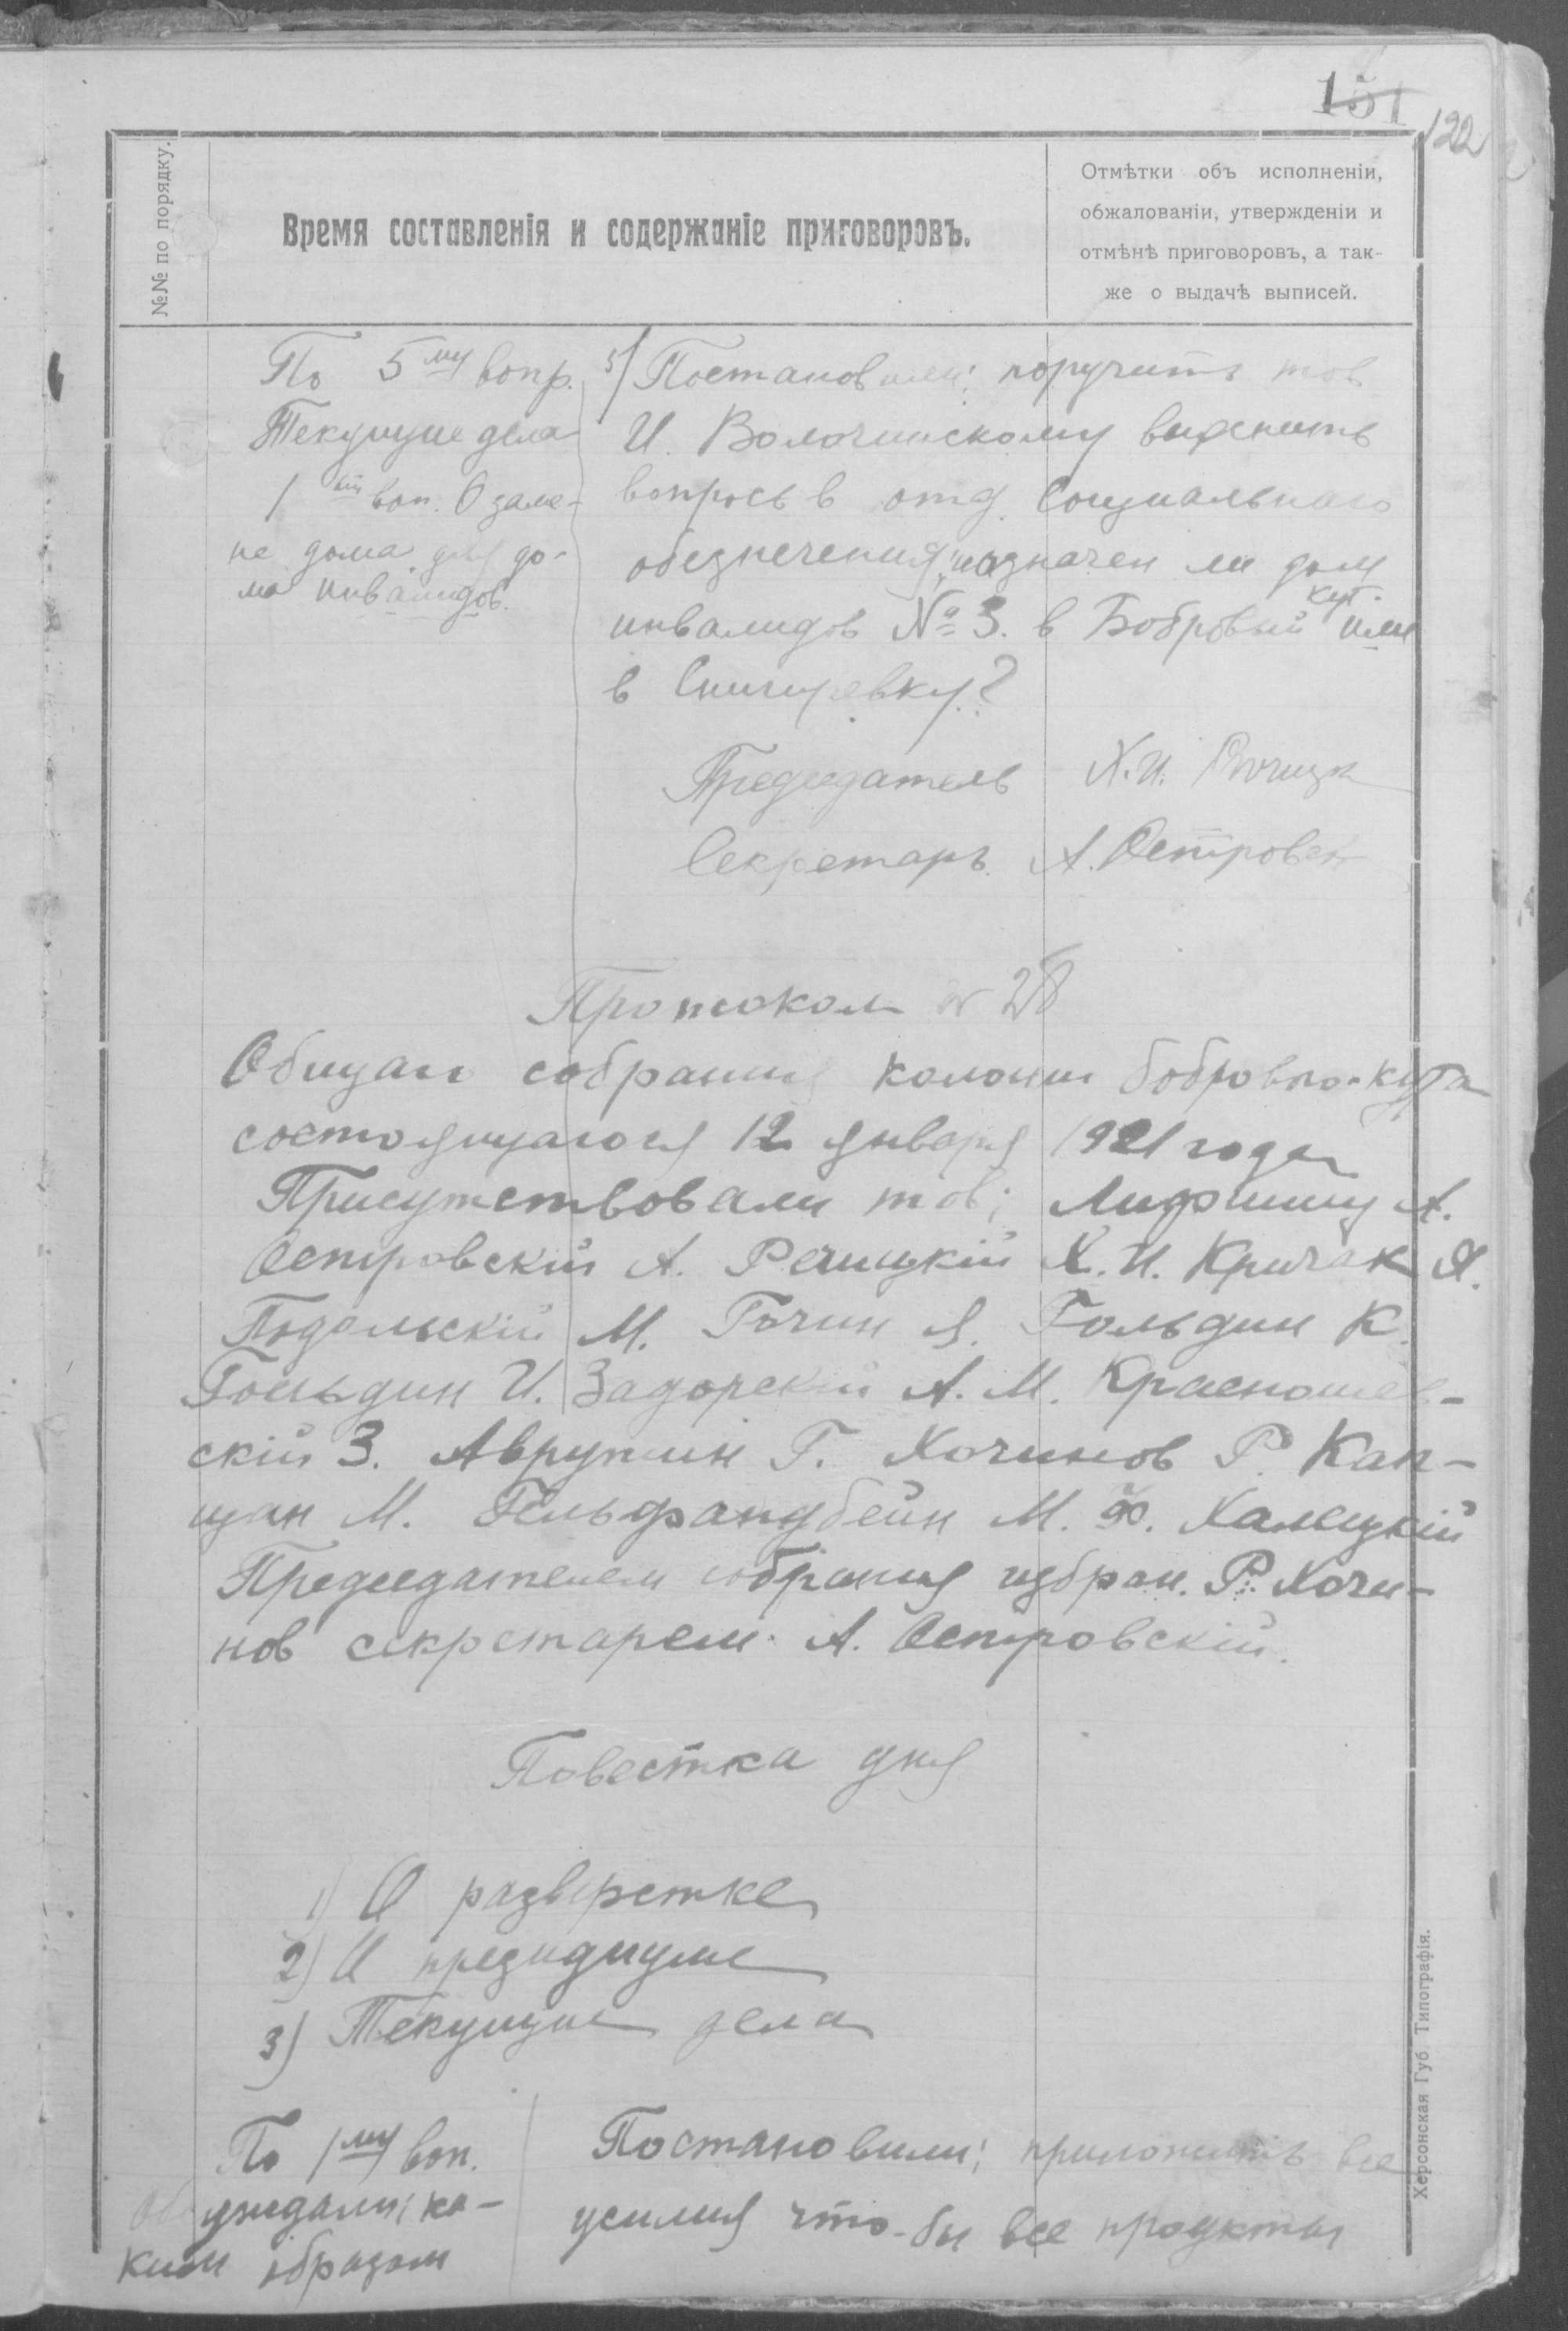 151
122
№№ по порядку.
Время составленія и содержаніе приговоровъ.
Отмѣтки объ исполненіи,
обжалованіи, утвержденіи и
отмѣнѣ приговоровъ, а так-
же о выдачѣ выписей.
По 5му вопр.
Текущие дела
1ый воп. О заме-
не дома для до-
ма инвалидов.
5) Постановили: поручить тов
И. Волочинскому выяснить
вопрось в отд. Социальнаго
обезпечения, назначен ли дом
инвалидов № 3. в Бобровый кут. или
в Снигиревку?
Председатель Х. И.
Секретарь А. Островск
Протокол № 28
Общаго собрания колонии Бобрового-Кута
состоящагося 12 января 1921 года
Присутствовали тов: Лифшиц А.
Островскій А. Речицкій Х. И. Кричак Я.
Подольскій М. Гочин Я. Гольдин К.
Гольдин И. Задорскій А. М. Красношев-
скій З. Аврутин Г. Хочинов Р. Кап-
цан М. Гельфандбейн М. Ф. Халецкій
Председателем собрания избран. Р. Хочи-
нов секретарем А. Островскій.
Повестка дня
1) О разверстке
2) О президиуме
3) Текущие дела
По 1му воп.
обсуждали ка-
ким образом
Постановили; приложить все
усилия что-бы все продукты
Херсонская Губ. Типографія.